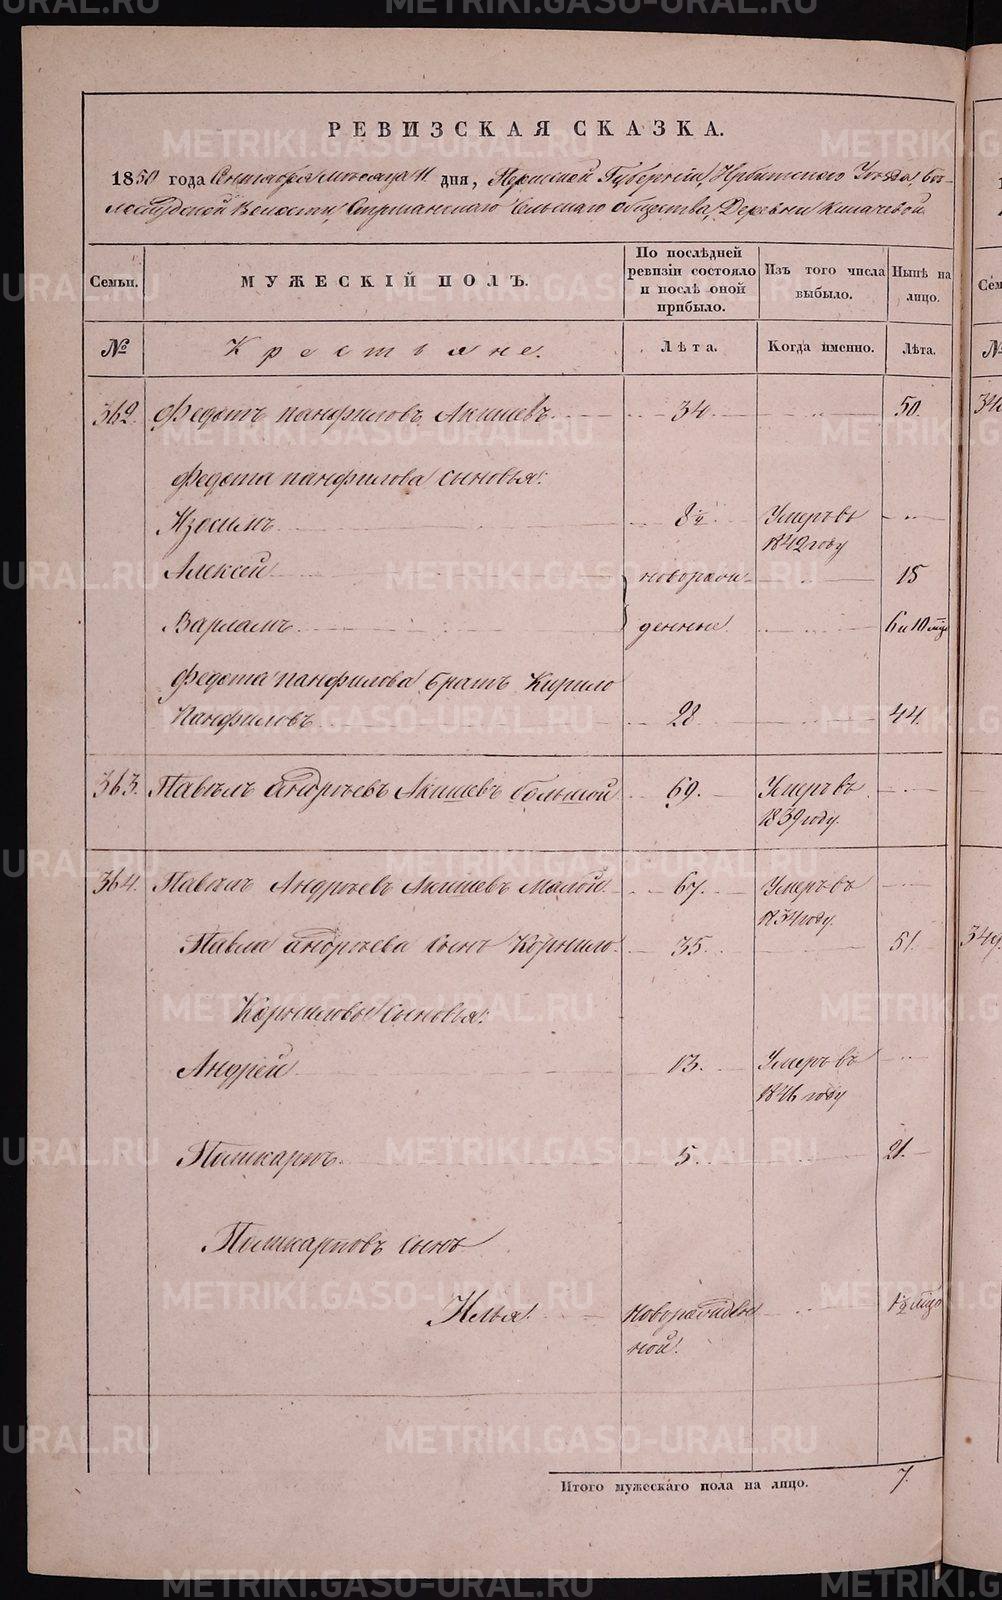 РЕВИЗСКАЯ СКАЗКА.
1850 года Сентября месяца 11 дня, Пермской Губернии, Ирбитского Уезда, Бо-
Стриганскаго Сельскаго общества, Деревни
Семьи. МУЖЕСКІЙ ПОЛЪ. По послѣдней ревизіи состояло и послѣ оной прибыло. Изъ того числа выбыло. Нынѣ на лицо.
№ Крестьяне. Лѣта. Когда именно. Лѣта.
362. Федотъ Панфиловъ Акишевъ 34 50
Федота Панфилова сыновья:
Изосимъ 8½ Умеръ въ
1842 году
Алексей новорож- 15
Варламъ денные 6 и 10 мцо
Федота Панфилова братъ Кирило
Панфиловъ 28 44
363. Павелъ Андреевъ Акишевъ большой 69. Умеръ въ
1839 году.
364. Павелъ Андреевъ Акишевъ Малой 67. Умеръ въ
1834 году.
Павла Андреева сынъ Корнило 35. 51.
Корниловы сыновья:
Андрей 13. Умеръ въ
1846 году
Поликарпъ. 5. 21.
Поликарповъ сынъ
Илья. новорожден
ной.
Итого мужескаго пола на лицо. 7.
METRIKI.GASO-URAL.RU